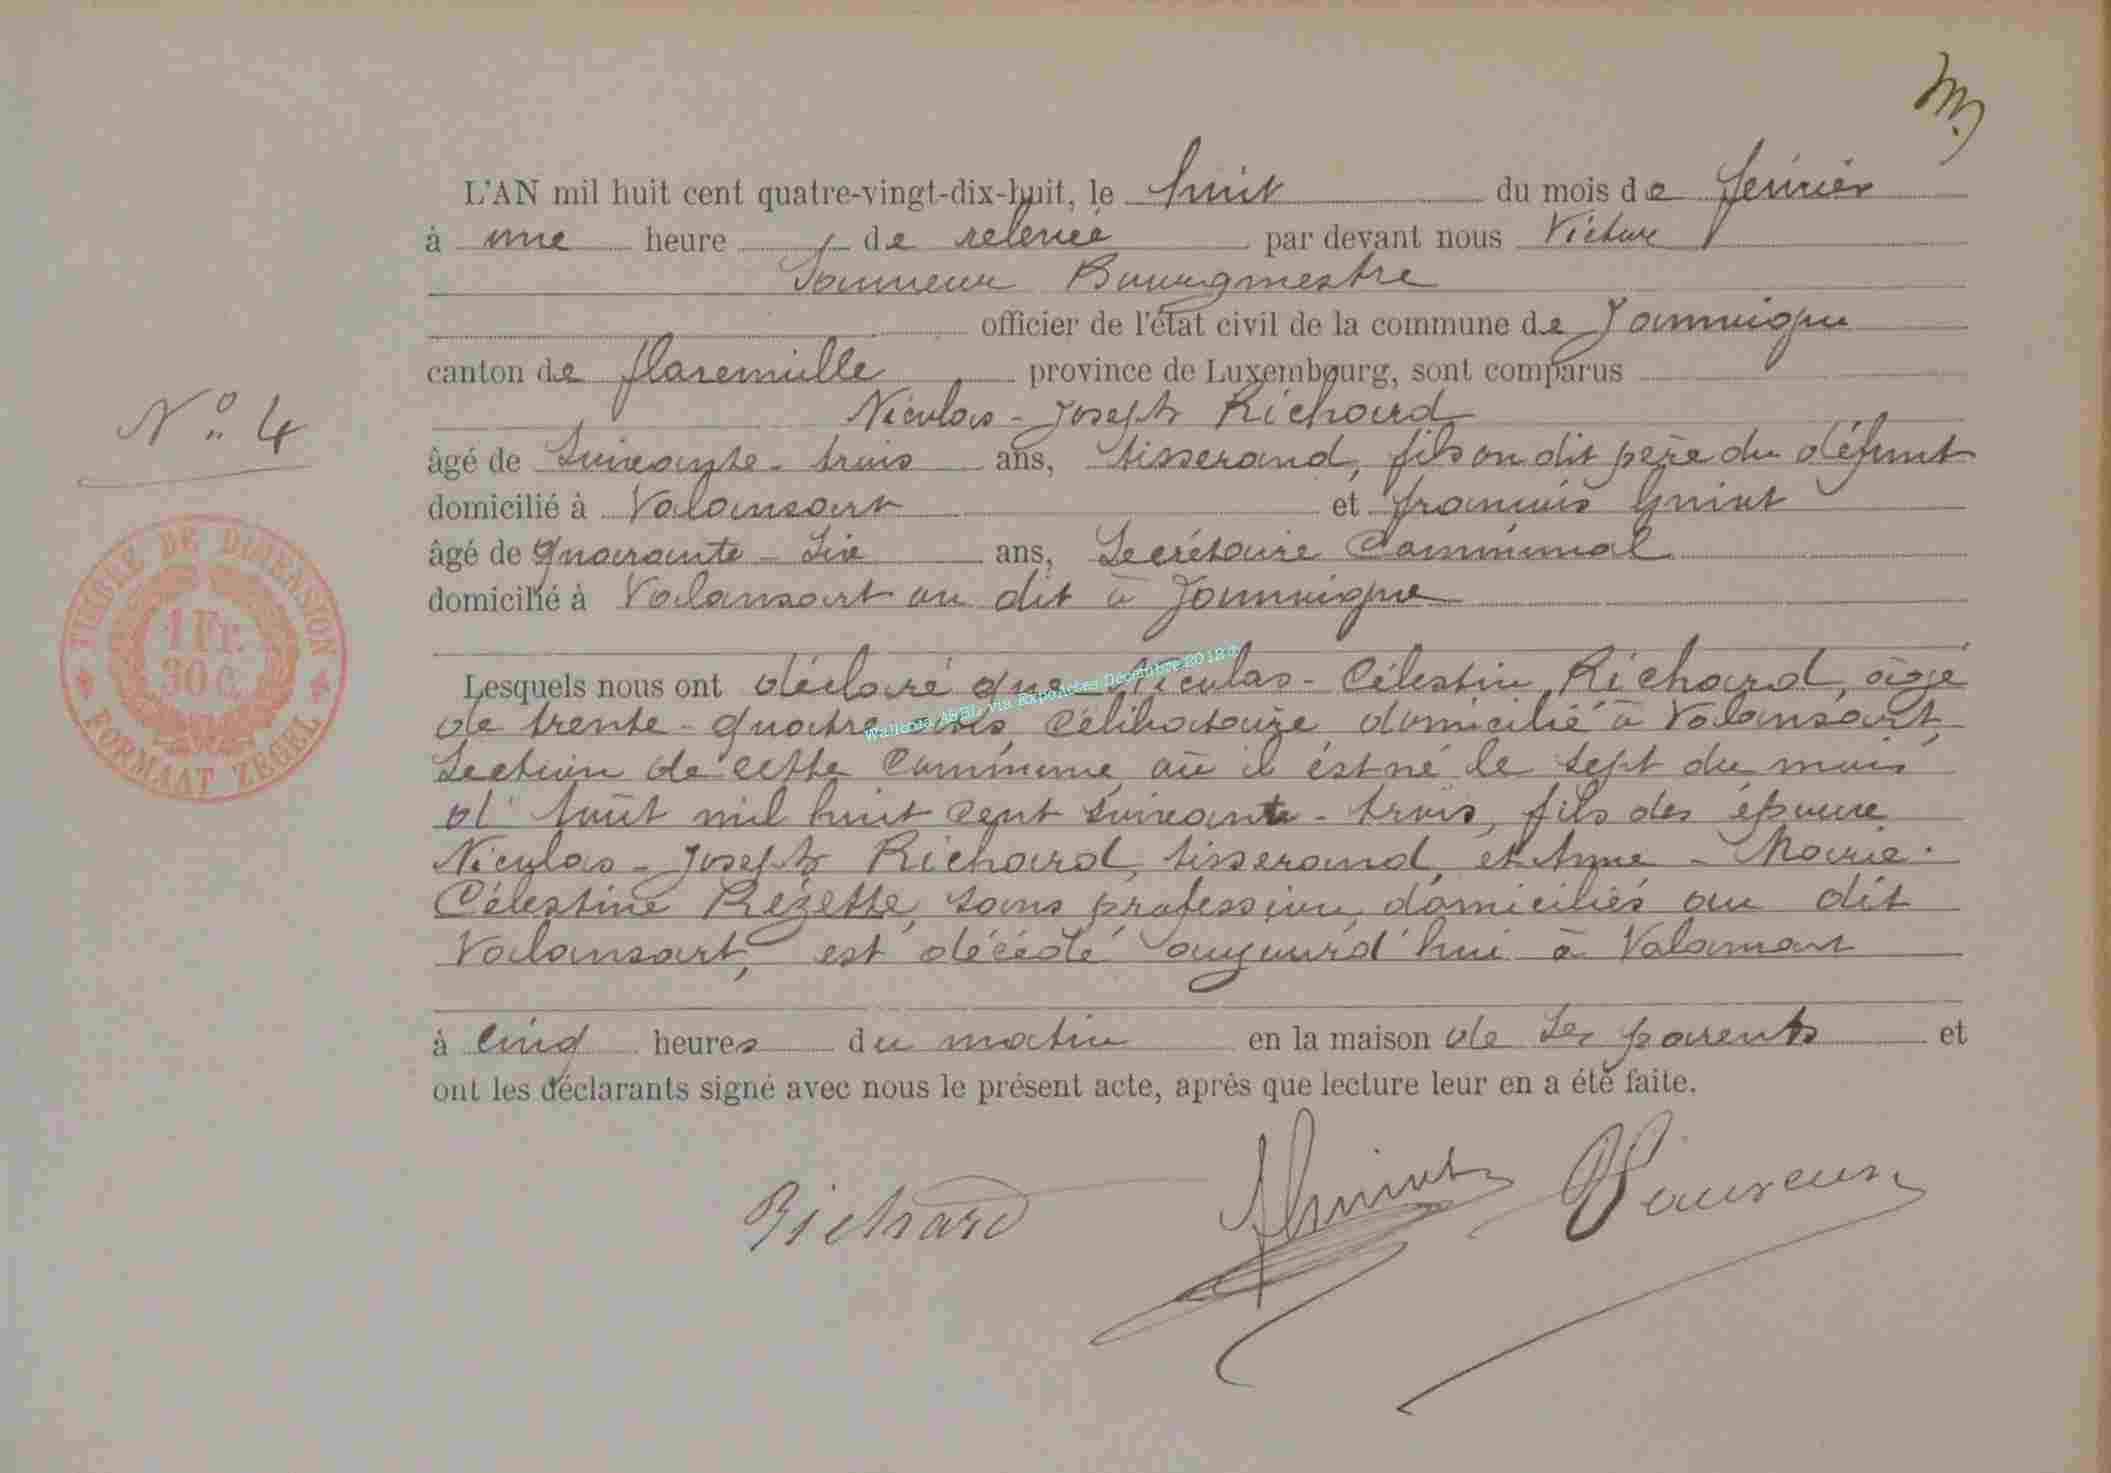 L'AN mil huit cent quatre-vingt-dix-huit, le huit du mois de février
à une heure de relevée par devant nous Victor
Bourgmestre
officier de l'état civil de la commune de Jamoigne
canton de florenville province de Luxembourg, sont comparus
Nicolas-Joseph Richard
N° 4
âgé de Soixante-trois ans, tisserand, père du défunt
domicilié à Valansart et françois
âgé de quarante-Six ans, Secrétaire Communal
domicilié à Valansart au dit à Jamoigne
TIMBRE DE DIMENSION
1 Fr.
30 C.
FORMAAT ZEGEL
Lesquels nous ont déclaré que Nicolas-Célestin Richard, âgé
de trente-quatre ans, Célibataire domicilié à Valansart,
Wallonia ASBL via ExpoActes Décembre 2018 ©
Section de cette Commune où il est né le Sept du mois
d'Août mil huit cent Soixante-trois, fils des époux
Nicolas-Joseph Richard, tisserand, et Anne-Marie-
Célestine Rézette, sans profession, domiciliés au dit
Valansart, est décédé aujourd'hui à Valansart
à Cinq heures du matin en la maison de Ses parents et
ont les déclarants signé avec nous le présent acte, après que lecture leur en a été faite.
Richard